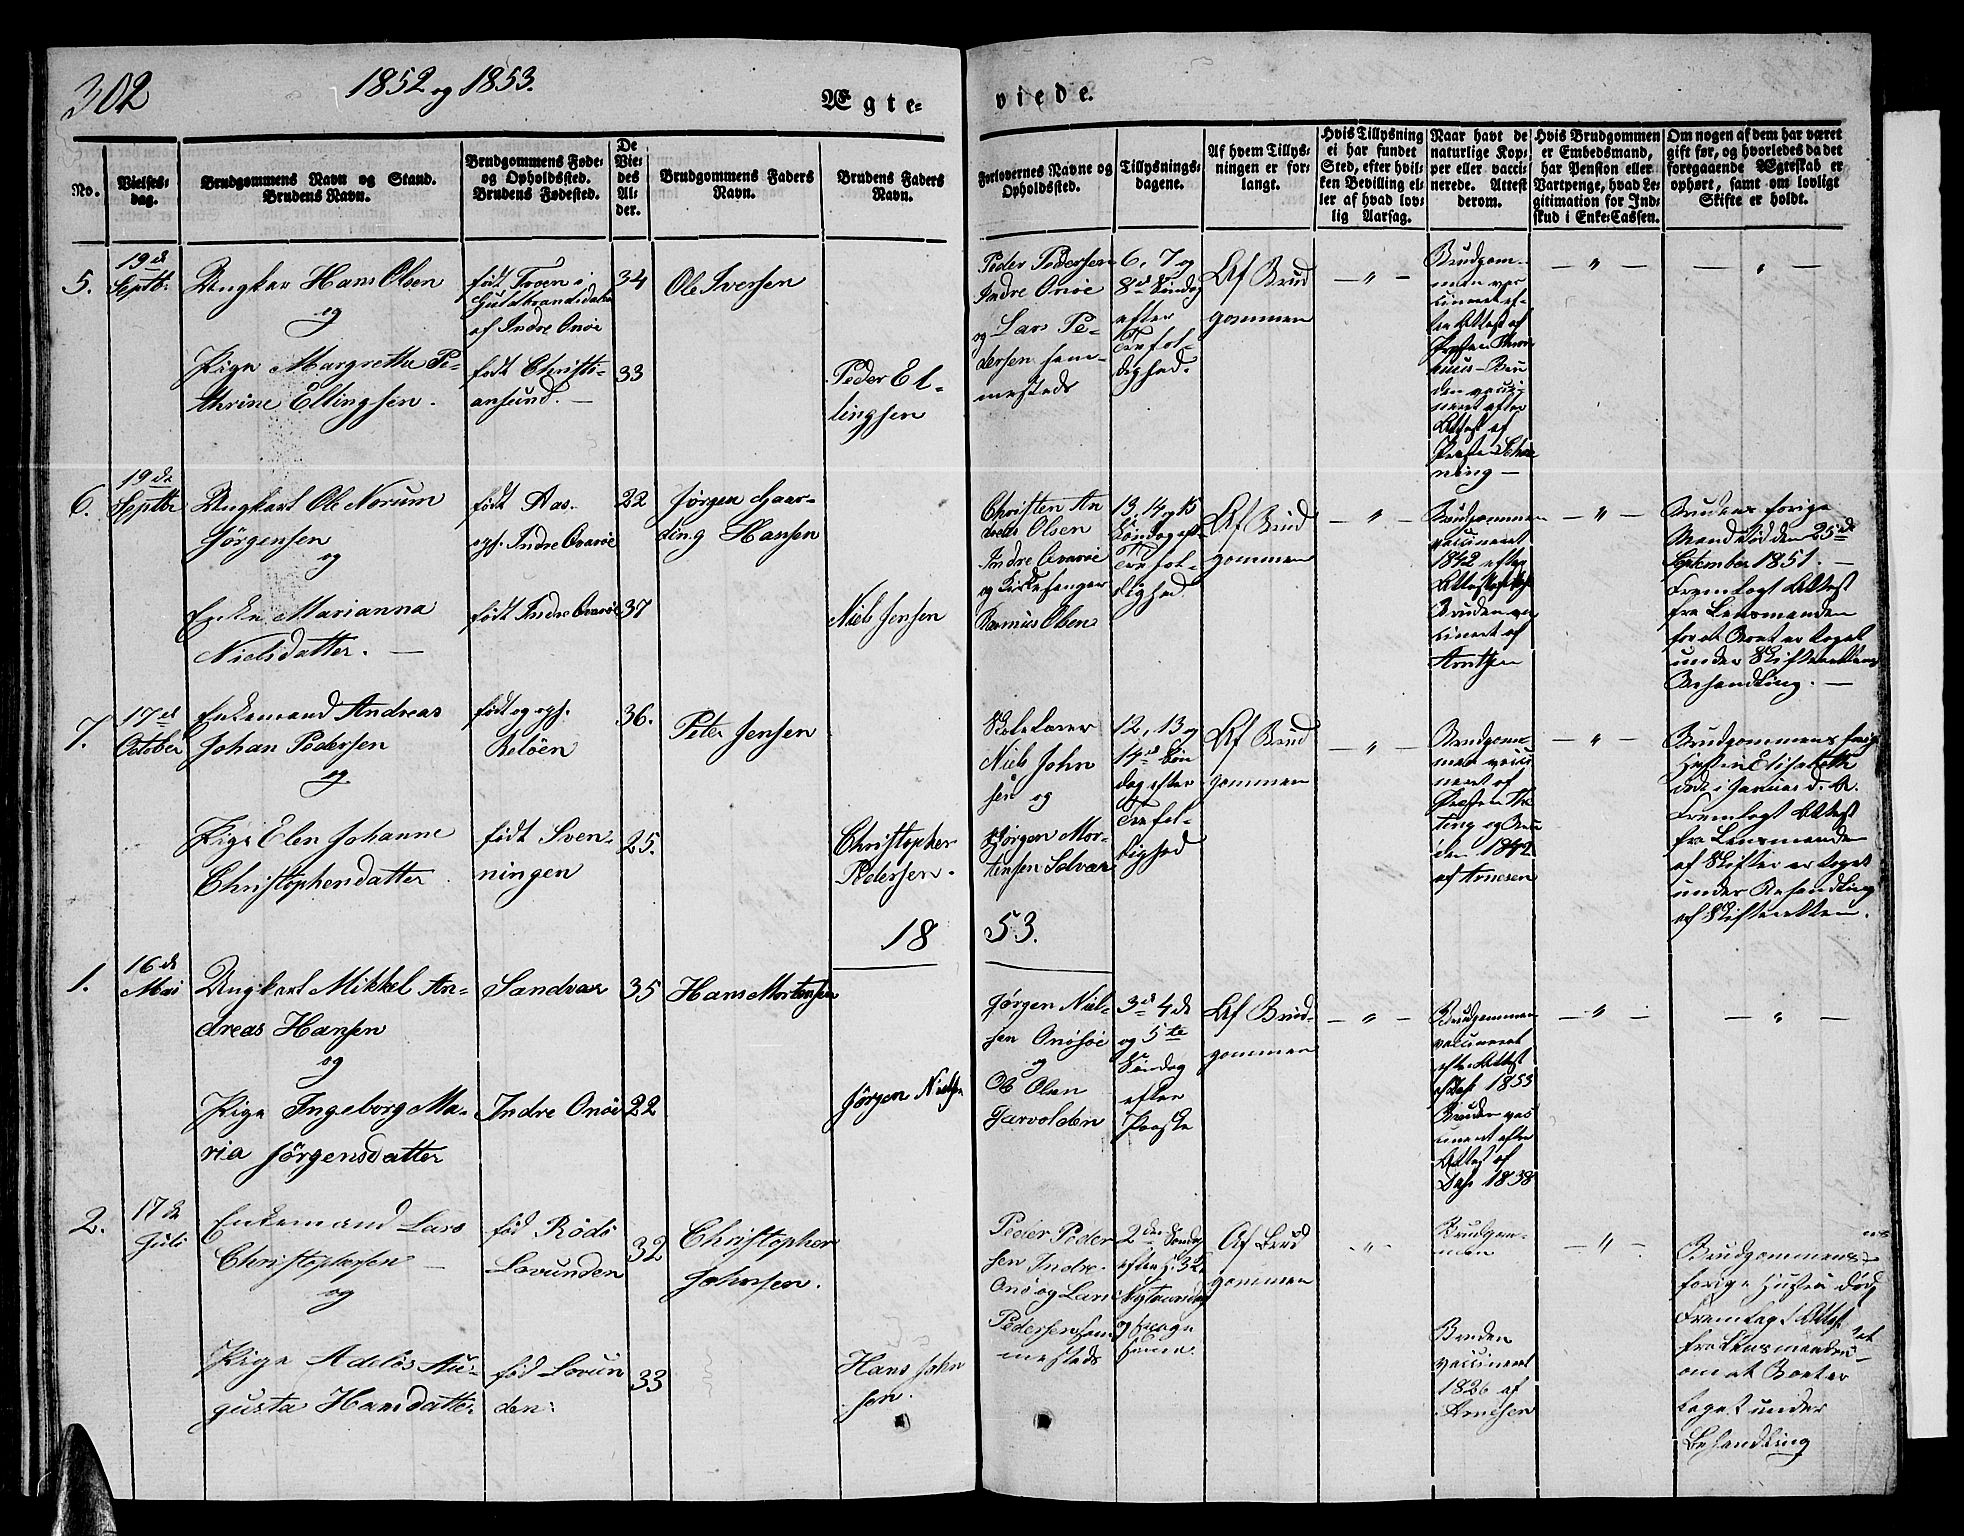 302
1852 og 1853.
Ægte-
viede.
No.
Vielses-
dag.
Brudgommens Navn og Stand.
Brudens Navn.
Brudgommens Føde-
og Opholdssted.
Brudens Fødested.
De
Vie-
des
Al-
der.
Brudgommens Faders
Navn.
Brudens Faders
Navn.
Forlovernes Navne og
Opholdssted.
Tillysnings-
dagene.
Af hvem Tillys-
ningen er for-
langt.
Hvis Tillysning
ei har fundet
Sted, efter hvil-
ken Bevilling el-
ler af hvad lov-
lig Aarsag.
Naar havt de
naturlige Kop-
per eller vacci-
nerede. Attest
derom.
Hvis Brudgommen
er Embedsmand,
har Pension eller
Vartpenge, hvad Le-
gitimation for Ind-
skud i Enke-Cassen.
Om nogen af dem har været
gift før, og hvorledes da det
foregaaende Ægteskab er
ophørt, samt om lovligt
Skifte er holdt.
5.
19de
Septbr
Ungkar Hans Olsen
og
Pige Margretha Pe-
thrine Ellingsen.
født Froen i
Guldbrandsdalen
af Indre Onøe
født Christi-
ansund.
34
33
Ole Iversen
Peder El-
lingsen
Peder Pedersen
Indre Onøe
og Lars Pe-
dersen sam-
mesteds
6, 7 og
8de Søndag
efter
Trefol-
dighed.
Af Brud
gommen
— " —
Brudgom-
men vac
cineret ef-
ter Attest af
den vacci-
neret efter
Attest af
— " —
"
6.
19de
Septbr
Ungkarl Ole Norum
Jørgensen
og
Enke Marianna
Nielsdatter. —
født Aas.
oph. Indre Qvarøe
født Indre Qvarøe
22
37
Jørgen Haar-
ding Hansen
Niels Jensen
Christen An
dreas Olsen
Indre Qvarøe
og Kirkesanger
Rasmus Olsen
13, 14 og 15
Søndag eft
Trefol-
dighed
Af Brud
gommen
— " —
Brudgommen
vaccineret
1842 efter
Bruden vac
cineret af
Arntsen
— " —
Brudens forige
Mand død den 25de
September 1851. —
Fremlagt Attest
fra Lensmanden
for at Boet er taget
under Skifterettens
Behandling. —
7.
17de
October
Enkemand Andreas
Johan Pedersen
og
Pige Elen Johanne
Christophersdatter
født og oph.
Seløen
født Sven-
ningen
36.
25.
Peter Jensen
Christopher
Pedersen.
Skolelærer
Niels John
sen og
Jørgen Mor-
tensen Solvær
12, 13 og
14de Søn
dag efter
Trefol-
dighed
Af Brud
gommen
— " —
Brudgom-
men vacci
neret af
den 1842
af Arnesen
— " —
Brudgommens forig
Hustru Elisabeth
død i Januar d. A.
Fremlagt Attest
fra Lensmanden
at Skiftet er taget
under Behandling
af Skifteretten.
18
53.
1.
16de
Mai
Ungkarl Mikkel An-
dreas Hansen
og
Pige Ingeborg Ma-
ria Jørgensdatter
Sandvær
Indre Onøe
35
22
Hans Mortensen
Jørgen Nielsen
Jørgen Niel-
sen Onøsøe
og
Ole Olsen
Jarvolden
3de 4de
og 5te
Søndag
efter
Paaske
Af Brud-
gommen
— " —
Brudgommen
vaccineret
efter Attest
1853
Bruden vac
cineret efter
Attest af
1838
— " —
— " —
2.
17de
Juli
Enkemand Lars
Christophersen —
og
Pige Adelos Au-
gusta Hansdatter
fød Rødø
Lovunden
fød Lovun
den:
32
33
Christopher
Johnsen.
Hans John
sen.
Peder Peder
sen Indre-
Onø og Lars
Pedersen sam
mesteds
2den Søndag
efter H: 3k.
Nytaarsdag
Af Brud
gommen
- " -
Brudgom-
men
Bruden
vaccineret
1826 af
Arnesen
— " —
Brudgommens
forige Hustru død
Fremlagt Attest
fra Lensmanden
om at Boet er
taget under
Behandling